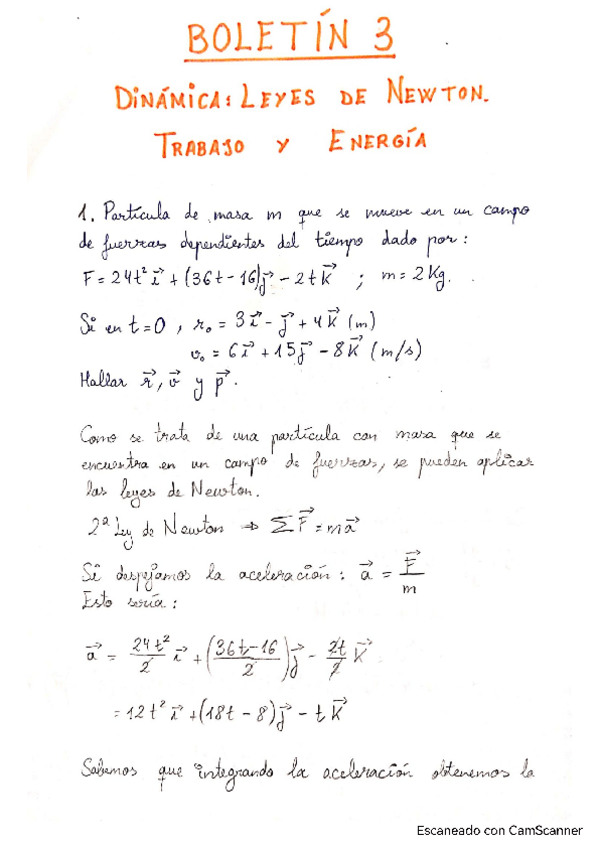 BOLETÍN 3
DINÁMICA: LEYES DE NEWTON.
TRABAJO Y ENERGÍA
1. Partícula de masa m que se mueve en un campo
de fuerzas dependientes del tiempo dado por:
F = 24t² i⃗ + (36t - 16) j⃗ - 2t k⃗ ; m = 2 Kg.
Si en t = 0 , r₀ = 3 i⃗ - j⃗ + 4 k⃗ (m)
v₀ = 6 i⃗ + 15 j⃗ - 8 k⃗ (m/s)
Hallar r⃗, v⃗ y p⃗.
Como se trata de una partícula con masa que se
encuentra en un campo de fuerzas, se pueden aplicar
las leyes de Newton.
2ª Ley de Newton ⇒ ΣF⃗ = ma⃗
Si despejamos la aceleración: a⃗ = F⃗/m
Esto sería:
a⃗ = 24t²/2 i⃗ + (36t-16/2) j⃗ - 2t/2 k⃗
= 12t² i⃗ + (18t - 8) j⃗ - t k⃗
Sabemos que integrando la aceleración obtenemos la
Escaneado con CamScanner